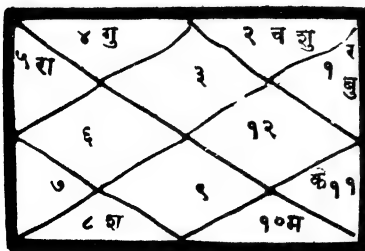 ४ गु २ च शु
५ रा ३ १ र बु
६ १२
७ ९ के ११
८ श १०म